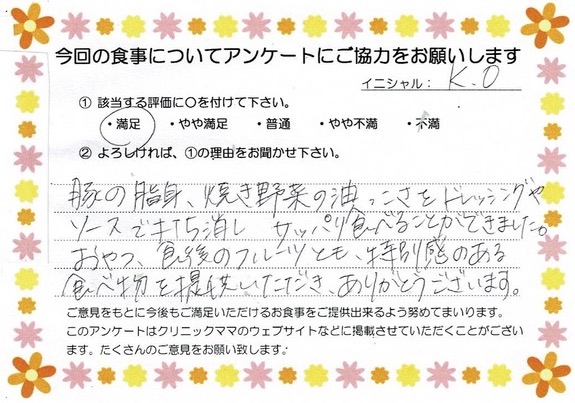 今回の食事についてアンケートにご協力をお願いします
イニシャル： K.O
① 該当する評価に○を付けて下さい。
・満足 ・やや満足 ・普通 ・やや不満 ・不満
② よろしければ、①の理由をお聞かせ下さい。
豚の脂身、焼き野菜の油っこさをドレッシングや
ソースで打ち消し サッパリ食べることができました。
おやつ、食後のフルーツとも、特別感のある
食べ物を提供いただき、ありがとうございます。
ご意見をもとに今後もご満足いただけるお食事をご提供出来るよう努めてまいります。
このアンケートはクリニックママのウェブサイトなどに掲載させていただくことがござい
ます。たくさんのご意見をお願い致します。